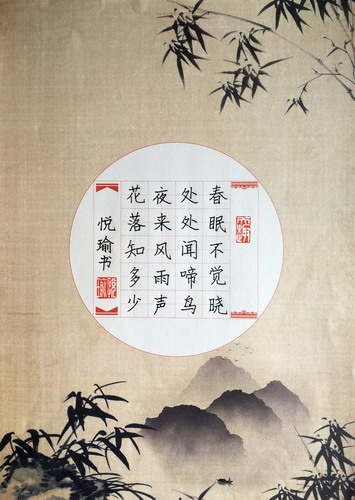 春眠不觉晓
处处闻啼鸟
夜来风雨声
花落知多少
悦瑜书